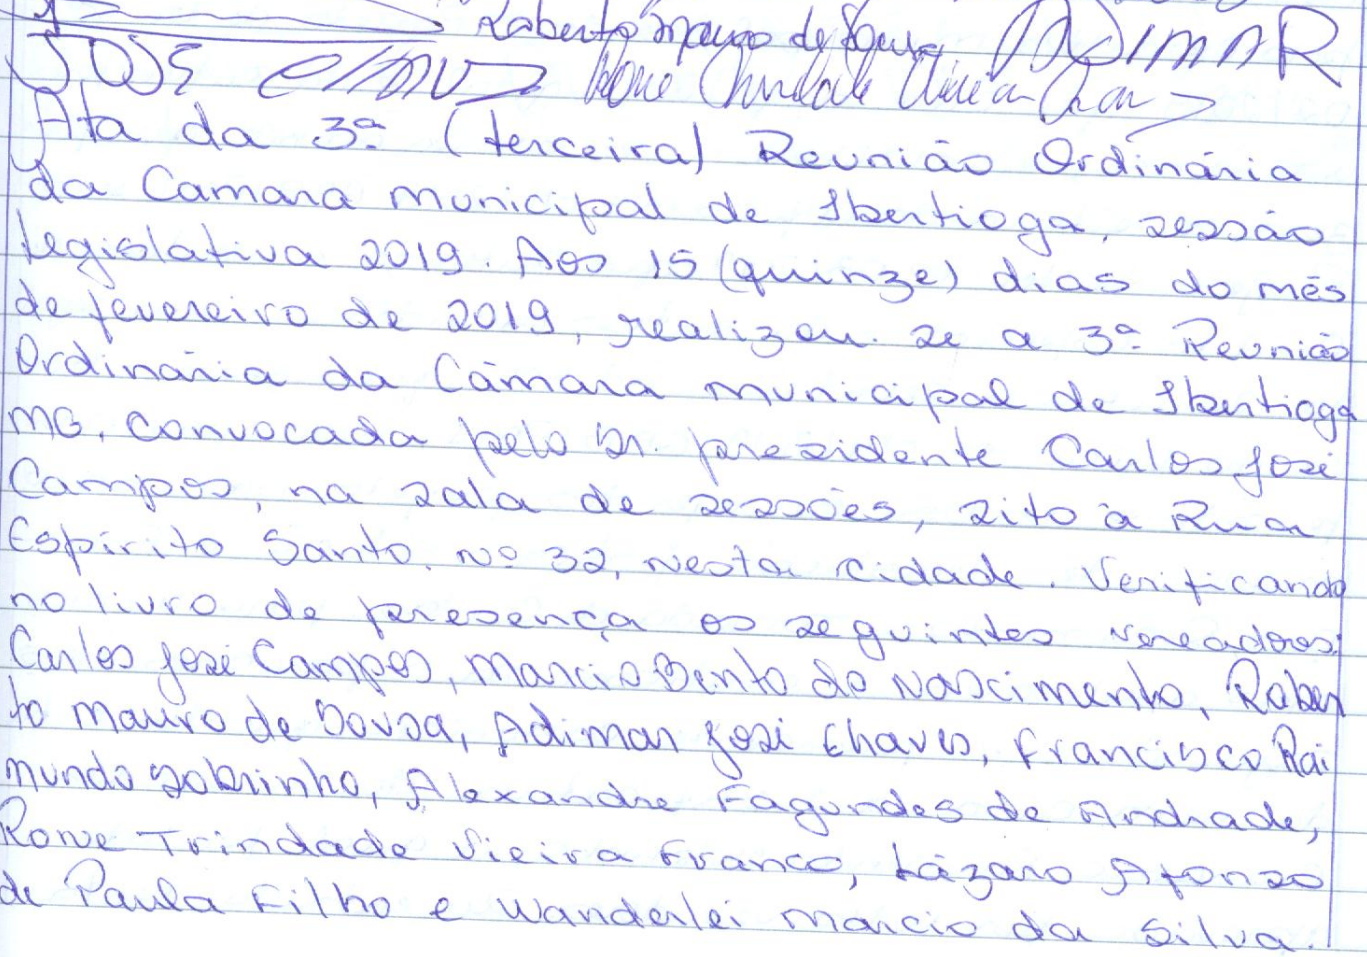 Roberto Mauro de Sousa ADIMAR
JOSÉ
Ata da 3ª (terceira) Reunião Ordinária
da Camara Municipal de Ibertioga, sessão
legislativa 2019. Aos 15 (quinze) dias do mês
de fevereiro de 2019, realizou-se a 3ª Reunião
Ordinária da Câmara Municipal de Ibertioga
MG, convocada pelo Sr. presidente Carlos José
Campos, na sala de sessões, sito à Rua
Espírito Santo, Nº 32, nesta cidade. Verificando
no livro de presença os seguintes vereadores:
Carlos José Campos, Marcio Bento do Nascimento, Rober
to Mauro de Sousa, Adimar José Chaves, Francisco Rai
mundo Sobrinho, Alexandre Fagundes de Andrade,
Rone Trindade Vieira Franco, Lázaro Afonso
de Paula Filho e Wanderlei Marcio da Silva.